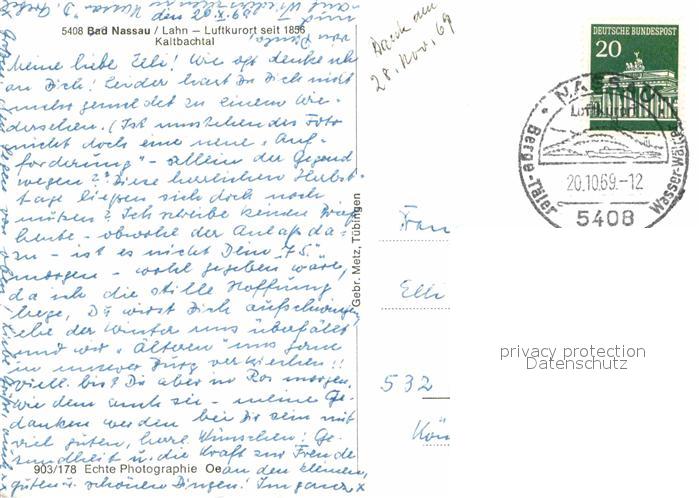 5408 Bad Nassau / Lahn – Luftkurort seit 1856
Kaltbachtal
Meine liebe Elli! Wie oft denke ich
an Dich! Leider hast Du Dich nicht
mehr gemeldet zu einem Wie-
dersehen. (Ist umstehendes Foto
nicht doch eine neue "Auf-
forderung" - allein der Gegend
wegen? Diese herrlichen Herbst-
tage ließen sich doch noch
nützen? Ich schreibe keinen Brief
heute - obwohl der Anlaß da-
zu - ist es nicht Dein "75."
morgen - wohl gegeben wäre,
da ich die stille Hoffnung
hege, Du wirst Dich aufschwingen,
ehe der Winter uns überfällt
und wir "Älteren" uns gerne
in unserer Burg verkriechen!!
viell. bist Du aber in
Wie dem auch sei - meine Ge-
danken werden bei Dir sein mit
viel guten, herzl. Wünschen: Ge-
sundheit u. die Kraft zur Freude
an den kleinen,
guten u. schönen Dingen!
903/178 Echte Photographie Oe
Gebr. Metz, Tübingen
28. Nov. 69
DEUTSCHE BUNDESPOST
20
NASSAU
Luftkurort
Berge-Täler
Wasser-Wälder
20.10.69.-12
5408
Frau
Elli
532
Kön
privacy protection
Datenschutz